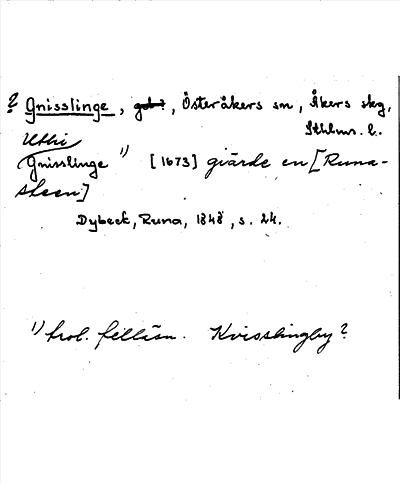 ? Gnisslinge, gd?, Österåkers sn, Åkers skg,
Sthlms l.
Uthi
Gnisslinge 1) [1673] giärde en [Runa-
steen]
Dybeck, Runa, 1848, s. 24.
1) trol. felläsn. Kvisslingby?